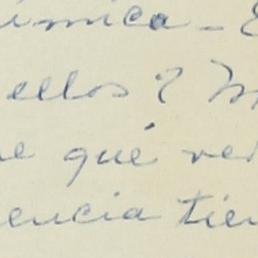 ímica - E
ellos? M
e qué ve
encia tien